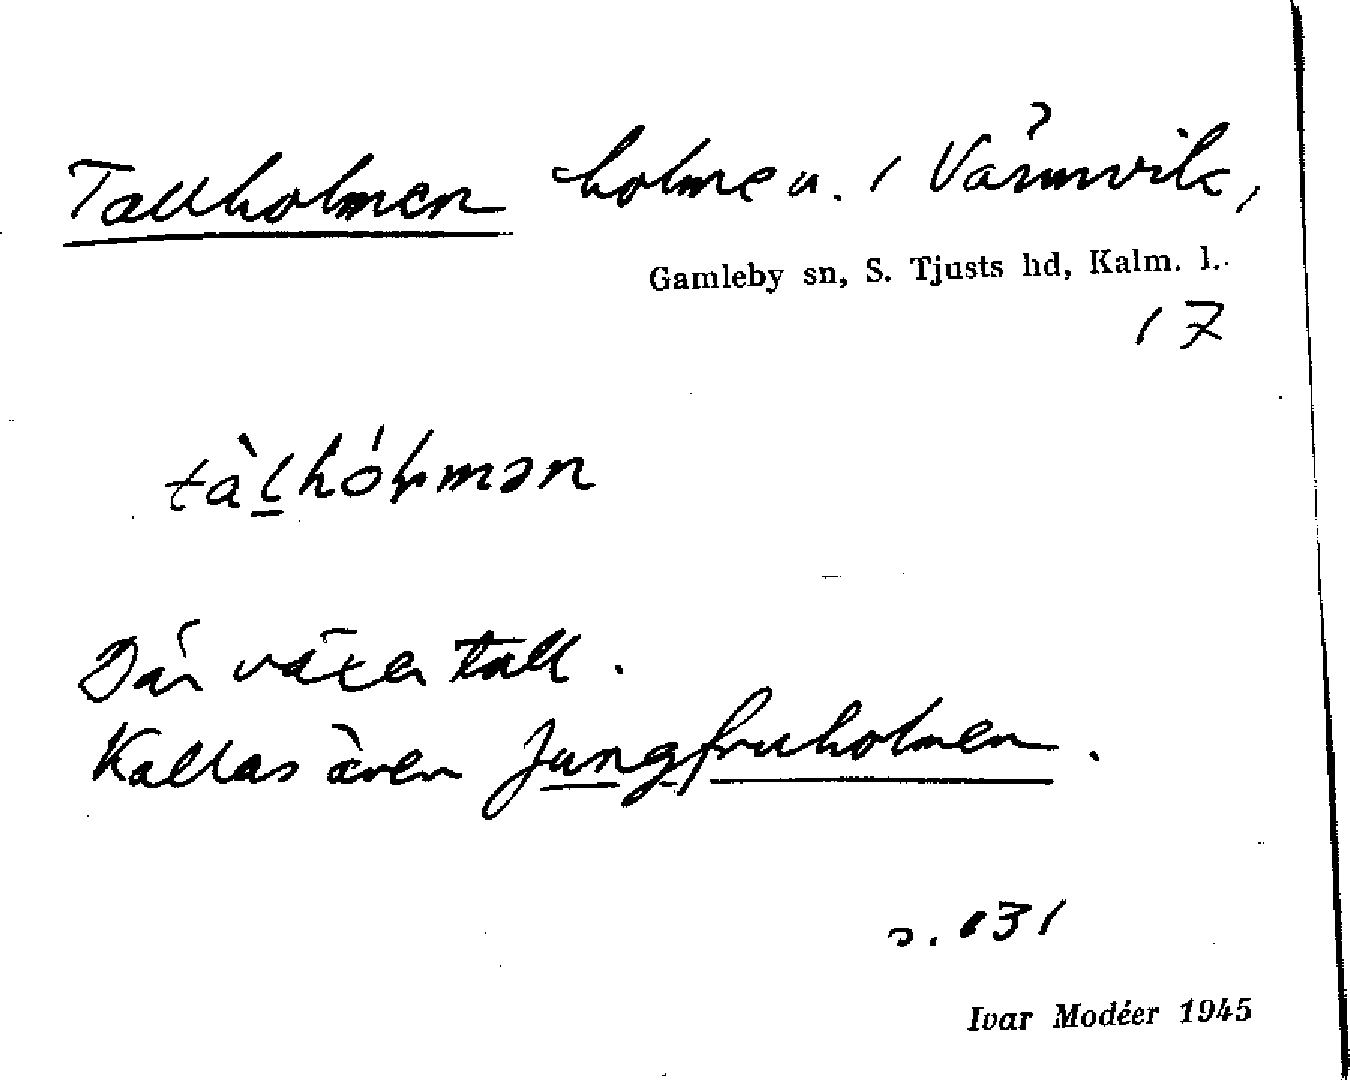 Tallholmen holme u. / Värmvik,
Gamleby sn, S. Tjusts hd, Kalm. l.
17
tàl̲hólmən
Där växer tall.
Kallas även Jungfruholmen.
s. 131
Ivar Modéer 1945